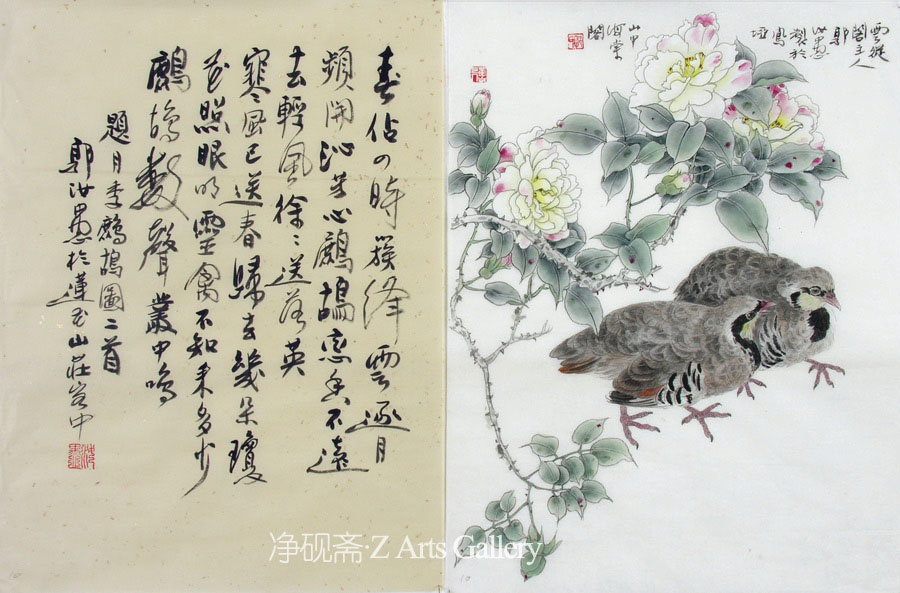 春佔四時簇絳雲逐月
頻開沁芳心鷓鴣戀香不遠
去輕風徐〻送落英
寒風已送春歸去幾朵瓊
花照眼明靈禽不知來多少
鷓鴣數聲叢中鳴
題月季鷓鴣圖二首
郭汝愚於蓮花山莊客中
雲從
閣主人
郭
汝愚
製於
鳳
山中
海棠
閣
净砚斋·Z Arts Gallery